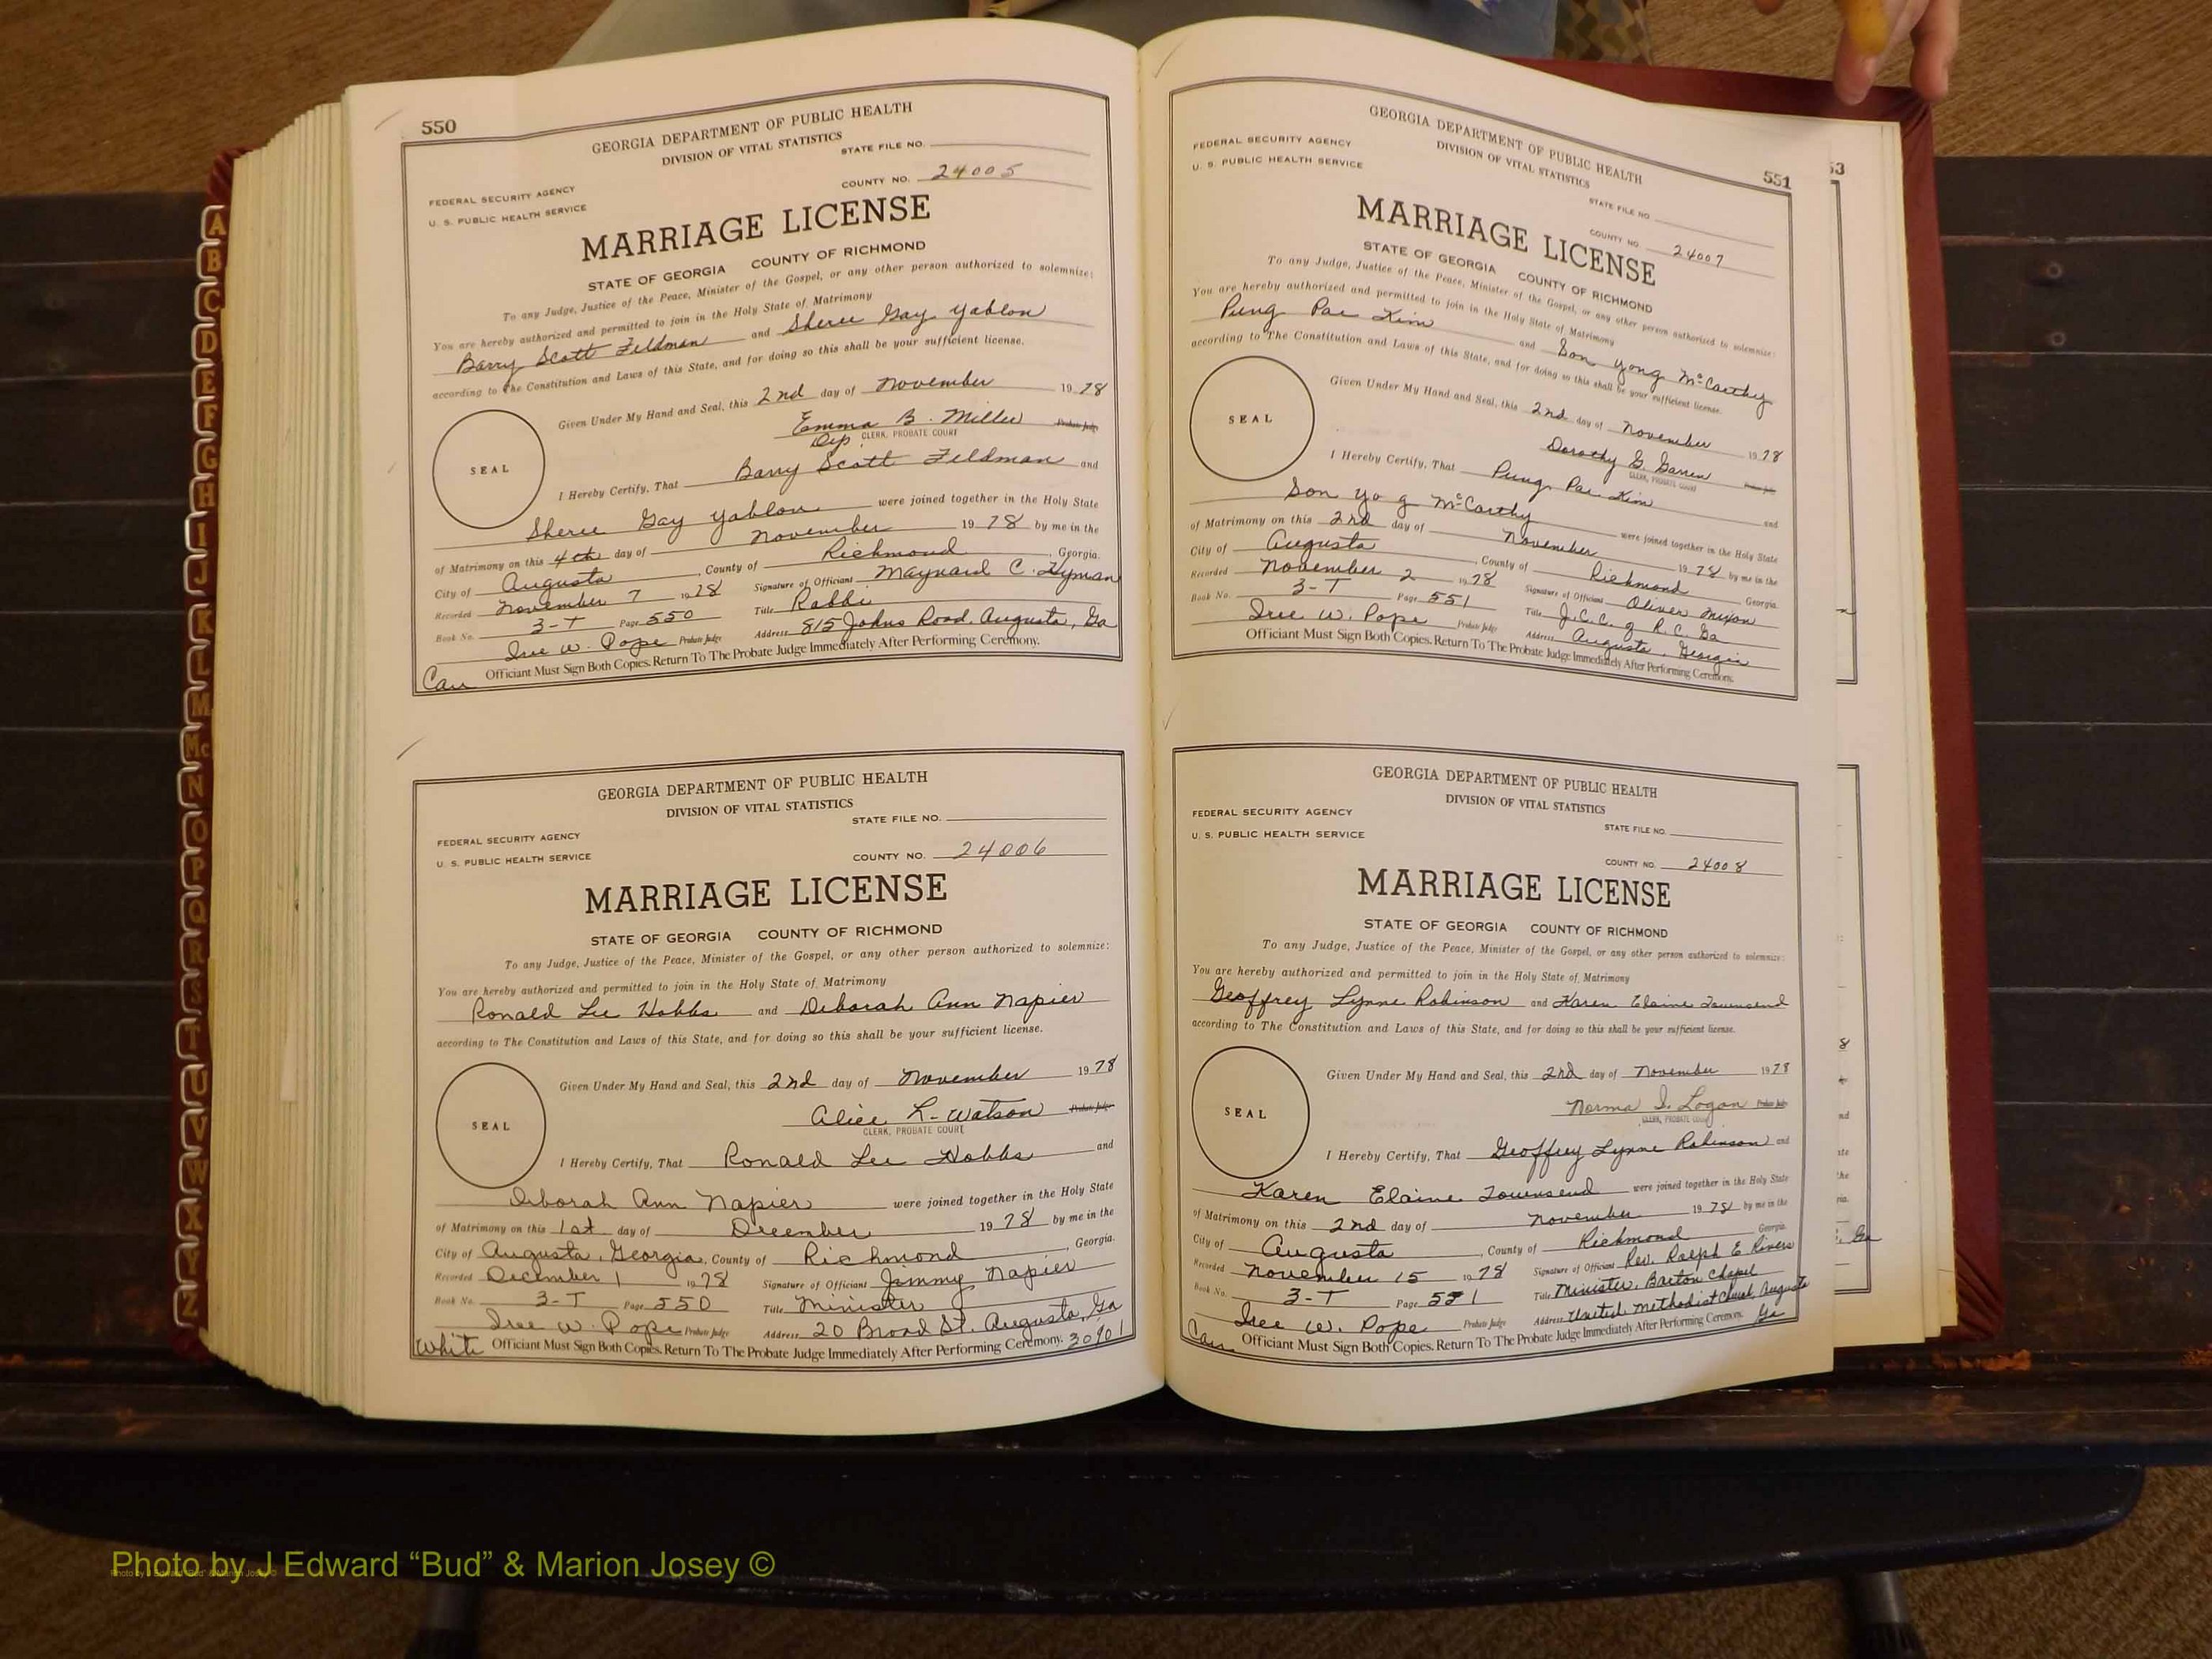 550
GEORGIA DEPARTMENT OF PUBLIC HEALTH
DIVISION OF VITAL STATISTICS
STATE FILE NO.
FEDERAL SECURITY AGENCY
COUNTY NO. 24005
U. S. PUBLIC HEALTH SERVICE
MARRIAGE LICENSE
STATE OF GEORGIA COUNTY OF RICHMOND
To any Judge, Justice of the Peace, Minister of the Gospel, or any other person authorized to solemnize:
You are hereby authorized and permitted to join in the Holy State of Matrimony
Barry Scott Feldman and Sheree Gay Yablon
according to The Constitution and Laws of this State, and for doing so this shall be your sufficient license.
Given Under My Hand and Seal, this 2nd day of November 1978
Emma B. Miller Probate Judge
Dep. CLERK, PROBATE COURT
SEAL
I Hereby Certify, That Barry Scott Feldman and
Sheree Gay Yablon were joined together in the Holy State
of Matrimony on this 4th day of November 1978 by me in the
City of Augusta, County of Richmond, Georgia.
Recorded November 7 1978 Signature of Officiant Maynard C. Hyman
Book No. 3-T Page 550 Title Rabbi
Iree W. Pope Probate Judge Address 815 Johns Road, Augusta, Ga
Officiant Must Sign Both Copies. Return To The Probate Judge Immediately After Performing Ceremony.
Cau
GEORGIA DEPARTMENT OF PUBLIC HEALTH
DIVISION OF VITAL STATISTICS
STATE FILE NO.
FEDERAL SECURITY AGENCY
U. S. PUBLIC HEALTH SERVICE
COUNTY NO. 24006
MARRIAGE LICENSE
STATE OF GEORGIA COUNTY OF RICHMOND
To any Judge, Justice of the Peace, Minister of the Gospel, or any other person authorized to solemnize:
You are hereby authorized and permitted to join in the Holy State of Matrimony
Ronald Lee Hobbs and Deborah Ann Napier
according to The Constitution and Laws of this State, and for doing so this shall be your sufficient license.
Given Under My Hand and Seal, this 2nd day of November 1978
Alice L. Watson Probate Judge
CLERK, PROBATE COURT
SEAL
I Hereby Certify, That Ronald Lee Hobbs and
Deborah Ann Napier were joined together in the Holy State
of Matrimony on this 1st day of December 1978 by me in the
City of Augusta, Georgia, County of Richmond, Georgia.
Recorded December 1 1978 Signature of Officiant Jimmy Napier
Book No. 3-T Page 550 Title Minister
Iree W. Pope Probate Judge Address 20 Broad St. Augusta, Ga
White Officiant Must Sign Both Copies. Return To The Probate Judge Immediately After Performing Ceremony. 30901
551
GEORGIA DEPARTMENT OF PUBLIC HEALTH
DIVISION OF VITAL STATISTICS
FEDERAL SECURITY AGENCY
U. S. PUBLIC HEALTH SERVICE
STATE FILE NO.
COUNTY NO. 24007
MARRIAGE LICENSE
STATE OF GEORGIA COUNTY OF RICHMOND
To any Judge, Justice of the Peace, Minister of the Gospel, or any other person authorized to solemnize:
You are hereby authorized and permitted to join in the Holy State of Matrimony
Pung Pae Kim and Son Yong McCarthy
according to The Constitution and Laws of this State, and for doing so this shall be your sufficient license.
Given Under My Hand and Seal, this 2nd day of November 1978
Dorothy G. Garren Probate Judge
CLERK, PROBATE COURT
SEAL
I Hereby Certify, That Pung Pae Kim and
Son Yo g McCarthy were joined together in the Holy State
of Matrimony on this 2nd day of November 1978 by me in the
City of Augusta, County of Richmond Georgia.
Recorded November 2 1978 Signature of Officiant Oliver Mixon
Book No. 3-T Page 551 Title J.C.C. of R.C. Ga
Iree W. Pope Probate Judge Address Augusta, Georgia
Officiant Must Sign Both Copies. Return To The Probate Judge Immediately After Performing Ceremony.
GEORGIA DEPARTMENT OF PUBLIC HEALTH
DIVISION OF VITAL STATISTICS
FEDERAL SECURITY AGENCY
U. S. PUBLIC HEALTH SERVICE
STATE FILE NO.
COUNTY NO. 24008
MARRIAGE LICENSE
STATE OF GEORGIA COUNTY OF RICHMOND
To any Judge, Justice of the Peace, Minister of the Gospel, or any other person authorized to solemnize:
You are hereby authorized and permitted to join in the Holy State of Matrimony
Geoffrey Lynne Robinson and Karen Elaine Townsend
according to The Constitution and Laws of this State, and for doing so this shall be your sufficient license.
Given Under My Hand and Seal, this 2nd day of November 1978
Norma I. Logan Probate Judge
CLERK, PROBATE COURT
SEAL
I Hereby Certify, That Geoffrey Lynne Robinson and
Karen Elaine Townsend were joined together in the Holy State
of Matrimony on this 2nd day of November 1978 by me in the
City of Augusta, County of Richmond Georgia.
Recorded November 15 1978 Signature of Officiant Rev. Ralph E Rivers
Book No. 3-T Page 551 Title Minister, Barton Chapel
Iree W. Pope Probate Judge Address United Methodist Church, Augusta
Cau Officiant Must Sign Both Copies. Return To The Probate Judge Immediately After Performing Ceremony. Ga
53
A
B
C
D
E
F
G
H
I
J
K
L
M
Mc
N
O
P
Q
R
S
T
U
V
W
X
Y
Z
Photo by J Edward “Bud” & Marion Josey ©
Photo by J Edward “Bud” & Marion Josey ©